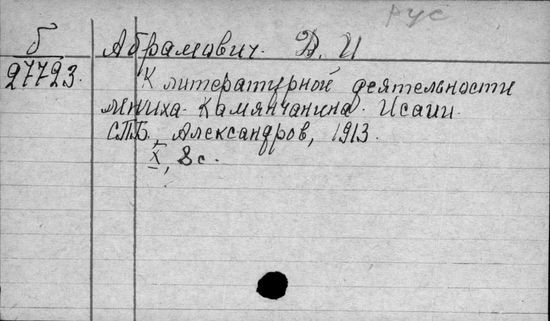 Рус
Б
27723.
Абрамович. Д. И
К литературной деятельности
мниха Камянчанина Исаии.
СПБ, Александров, 1913.
X, 8 с.